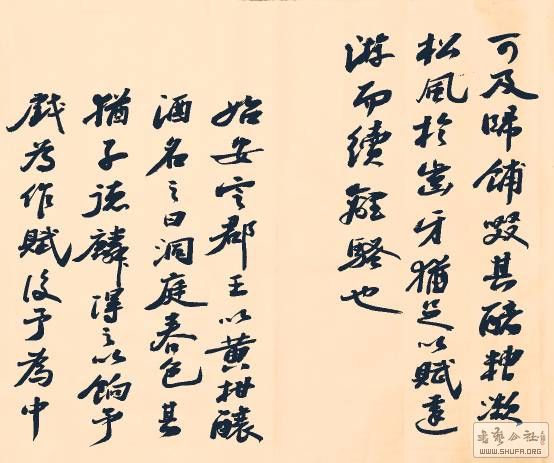 可及歸餔啜其醨糟漱
松風於齒牙猶足以賦遠
游而續離騷也
始安定郡王以黄柑釀
酒名之曰洞庭春色其
猶子德麟得之以餉予
戲為作賦後予為中
书艺公社
WWW.SHUFA.ORG